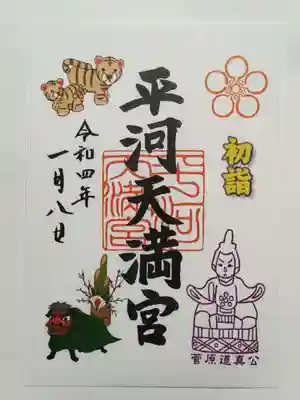 初詣
平河天満宮
平河天満宮
令和四年
一月八日
菅原道真公